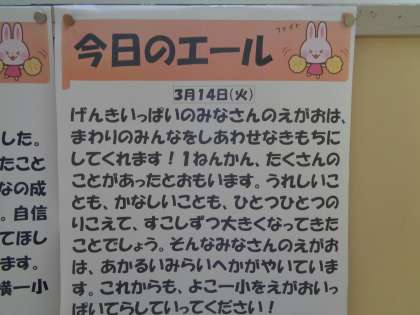 ファイト
今日のエール
3月14日(火)
げんきいっぱいのみなさんのえがおは、
まわりのみんなをしあわせなきもちに
してくれます！1ねんかん、たくさんの
ことがあったとおもいます。うれしいこ
とも、かなしいことも、ひとつひとつの
りこえて、すこしずつ大きくなってきた
ことでしょう。そんなみなさんのえがお
は、あかるいみらいへかがやいていま
す。これからも、よこ一小をえがおいっ
ぱいてらしていってください！
した。
たこと
なの成
。自信
てほし
ます。
横一小